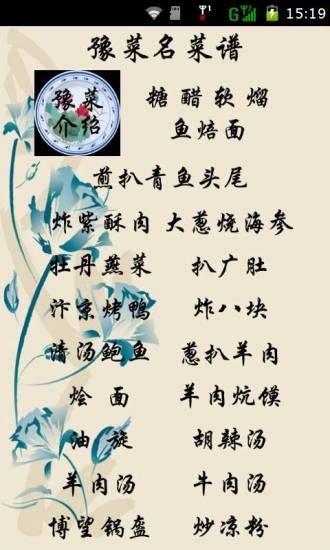 G 15:19
豫菜名菜谱
豫菜
介绍
糖醋软熘
鱼焙面
煎扒青鱼头尾
炸紫酥肉 大葱烧海参
牡丹燕菜 扒广肚
汴京烤鸭 炸八块
清汤鲍鱼 葱扒羊肉
烩面 羊肉炕馍
油旋 胡辣汤
羊肉汤 牛肉汤
博望锅盔 炒凉粉